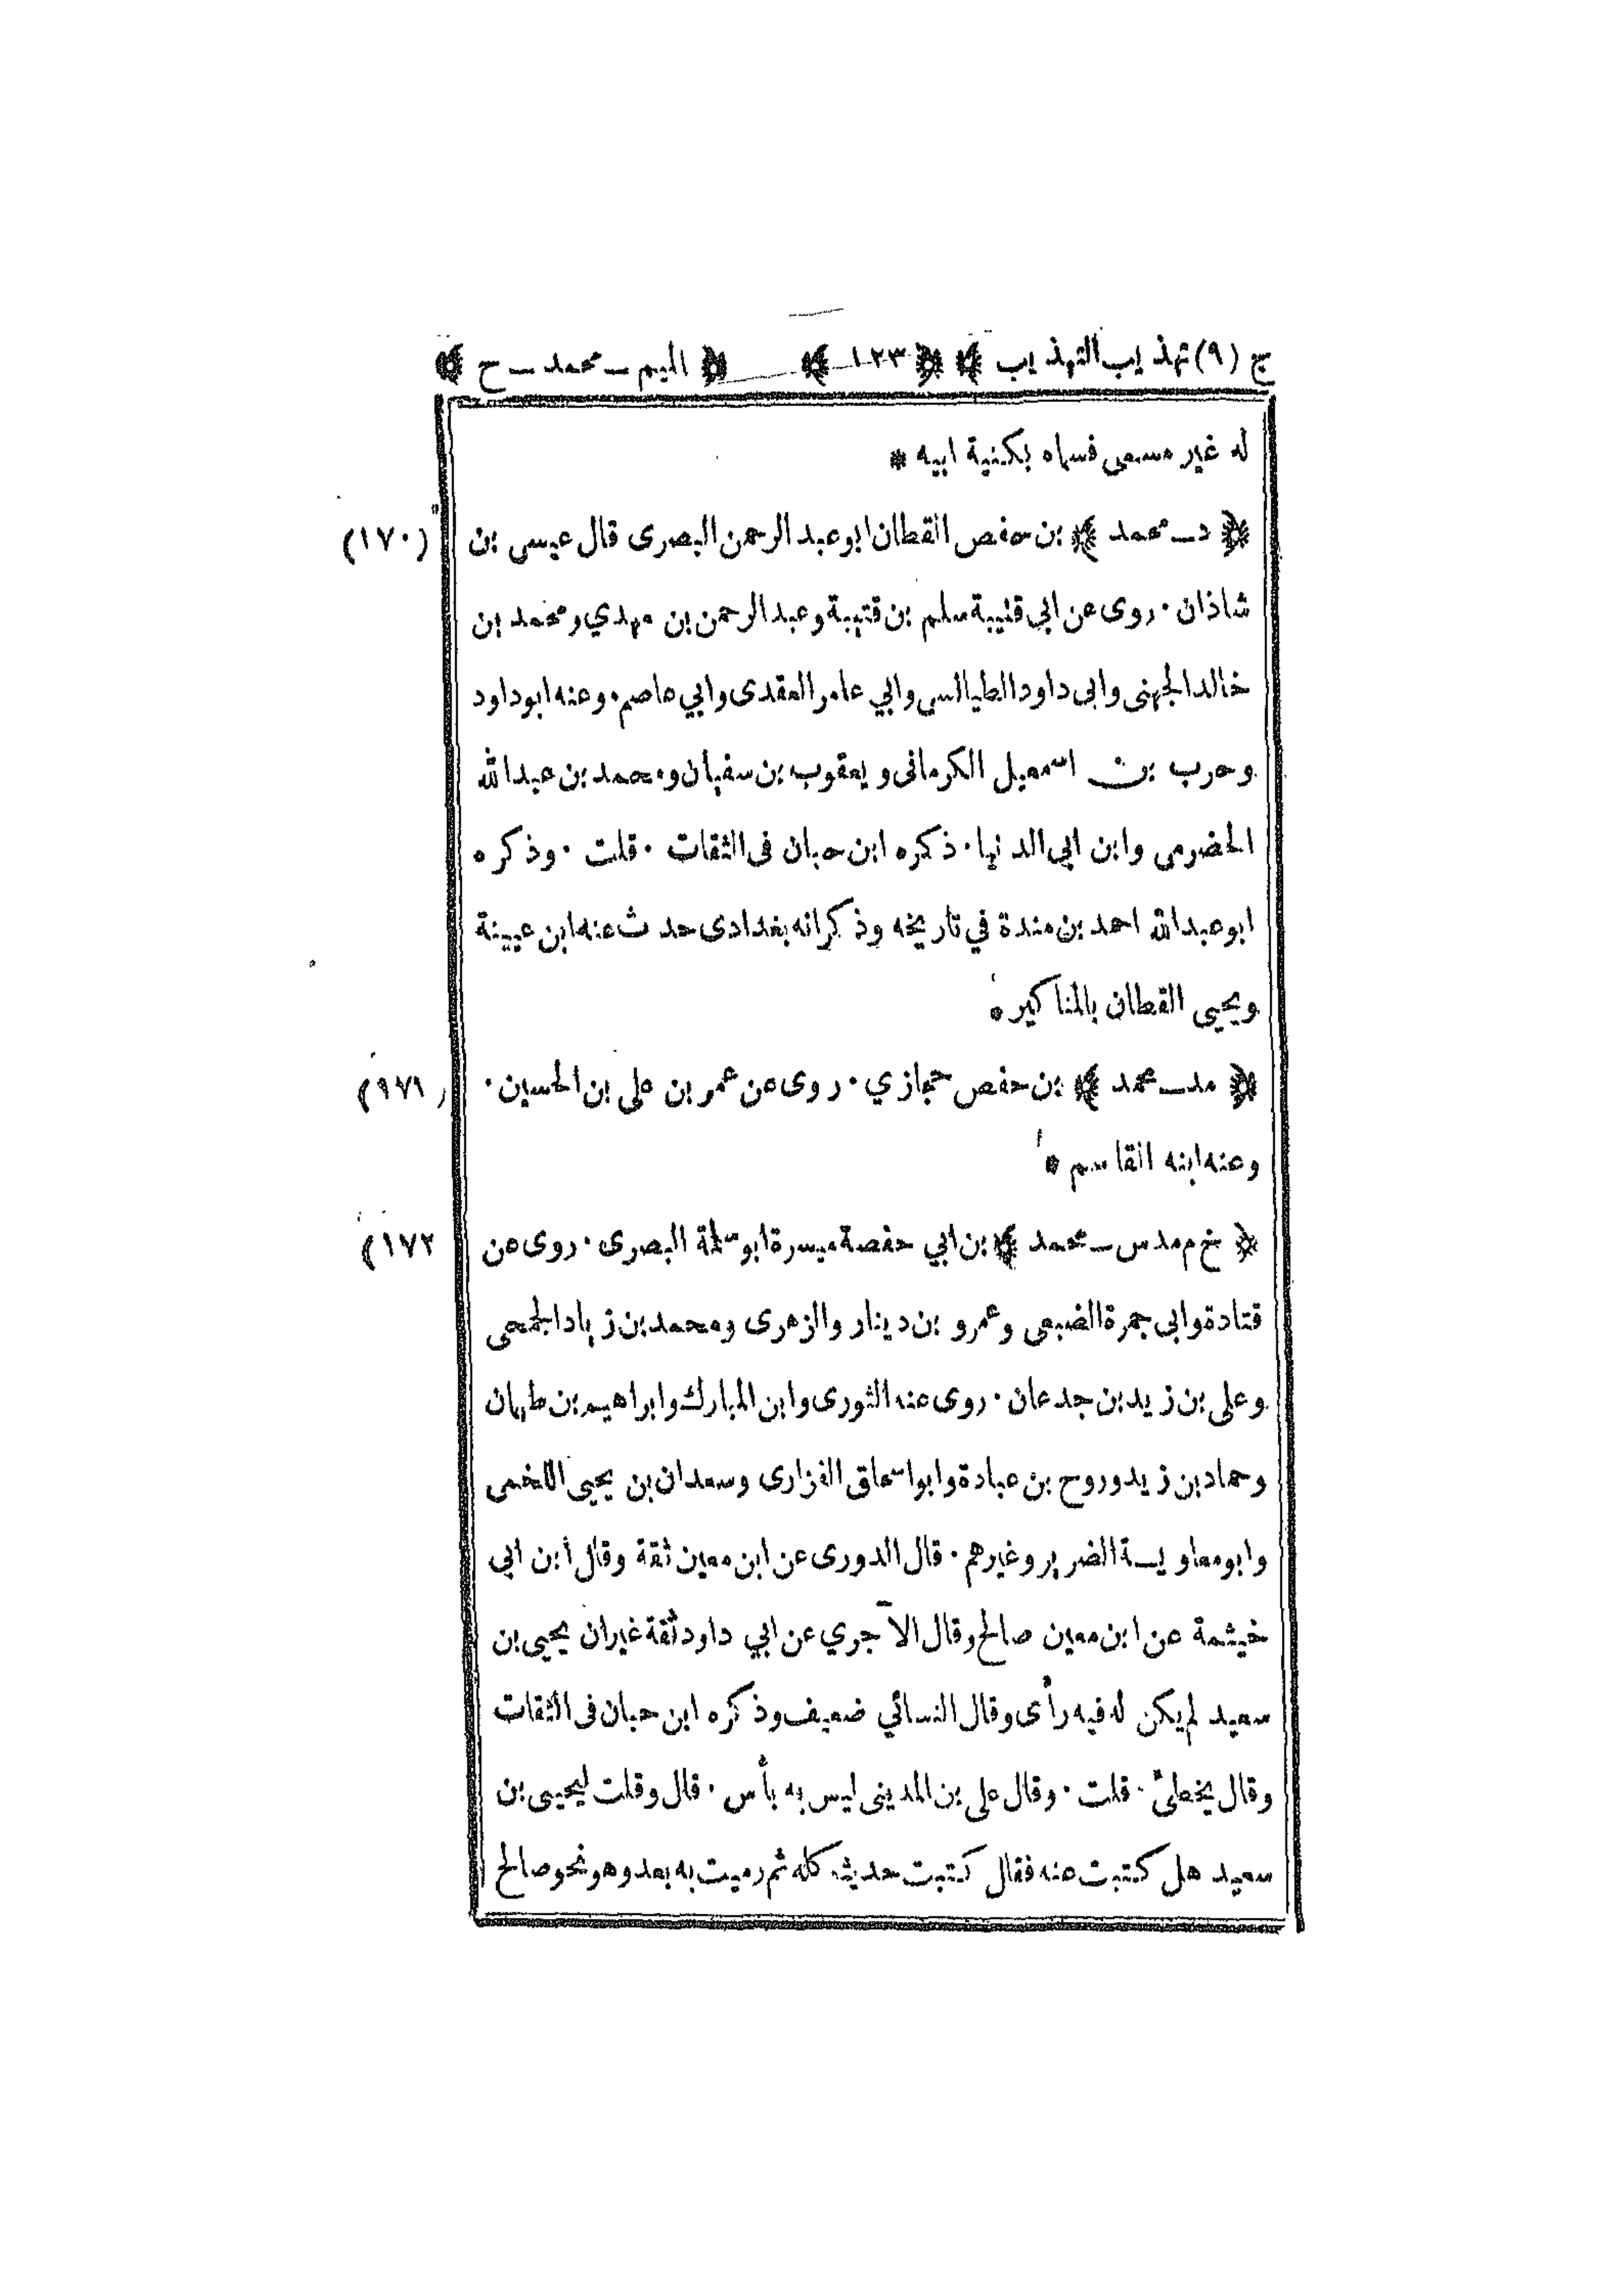 ج (٩) تهذيب التهذيب ﴾ ﴿ ١٢٣ ﴾ ﴿ الميم ــ محمد ــ ح ﴾
له غير مسمى فسماه بكنية ابيه *
﴿ د ــ محمد ﴾ بن حفص القطان ابو عبد الرحمن البصرى قال عيسى بن (١٧٠)
شاذان ٠ روى عن ابي قتيبة سلم بن قتيبة وعبد الرحمن بن مهدي ومحمد بن
خالد الجهنى وابى داود الطيالسى وابي عامر العقدى وابي عاصم ٠ وعنه ابو داود
وحرب بن اسمعيل الكرمانى ويعقوب بن سفيان ومحمد بن عبد الله
الحضرمى وابن ابي الدنيا ٠ ذكره ابن حبان فى الثقات ٠ قلت ٠ وذكره
ابو عبد الله احمد بن مندة في تاريخه وذكر انه بغدادى حدث عنه ابن عيينة
ويحيى القطان بالمناكير *
﴿ مد ــ محمد ﴾ بن حفص حجازي ٠ روى عن عمر بن على بن الحسين ٠ (١٧١)
وعنه ابنه القاسم *
﴿ خ م مد س ــ محمد ﴾ بن ابي حفصة ميسرة ابو سلمة البصرى ٠ روى عن ١٧٢)
قتادة وابى جمرة الضبعى وعمرو بن دينار والزهرى ومحمد بن زياد الجمحى
وعلى بن زيد بن جدعان ٠ روى عنه الثورى وابن المبارك وابراهيم بن طهمان
وحماد بن زيد وروح بن عبادة وابو اسحاق الفزارى وسعدان بن يحيى اللخمى
وابو معاويـــة الضرير وغيرهم ٠ قال الدورى عن ابن معين ثقة وقال ابن ابي
خيثمة عن ابن معين صالح وقال الآجري عن ابي داود ثقة غير ان يحيى بن
سعيد لم يكن له فيه رأى وقال النسائي ضعيف وذكره ابن حبان فى الثقات
وقال يخطئ ٠ قلت ٠ وقال على بن المدينى ليس به بأس ٠ قال وقلت ليحيى بن
سعيد هل كتبت عنه فقال كتبت حديثه كله ثم رميت به بعد وهو نحو صالح